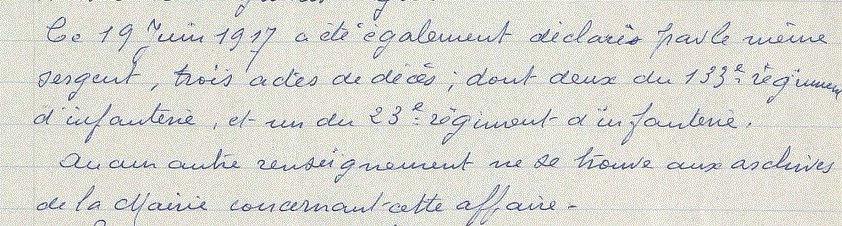 Ce 19 Juin 1917 a été également déclarés par le même
sergent, trois actes de décès ; dont deux du 133e régiment
d'infanterie, et un du 23e régiment d'infanterie.
Aucun autre renseignement ne se trouve aux archives
de la Mairie concernant cette affaire -